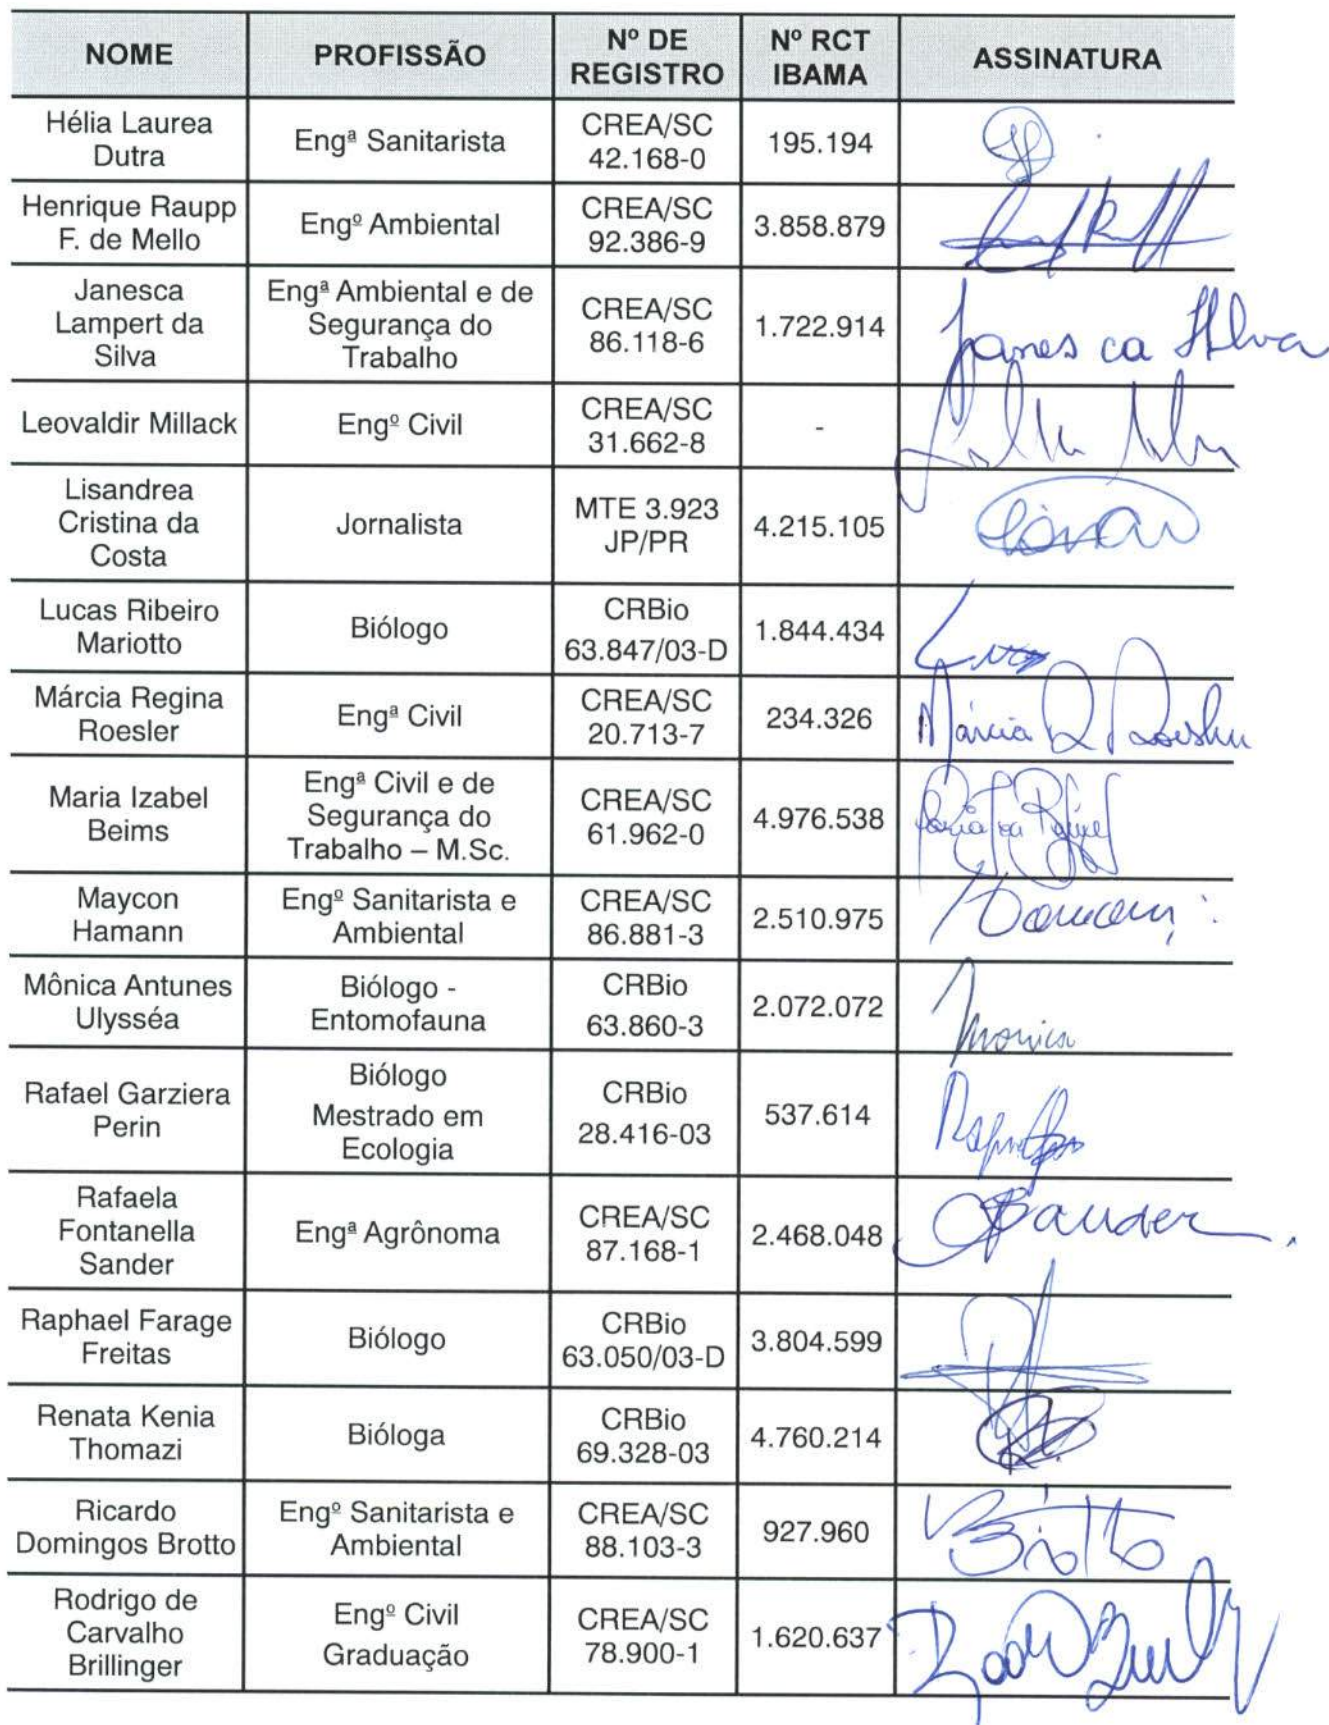 NOME PROFISSÃO Nº DE REGISTRO Nº RCT IBAMA ASSINATURA
Hélia Laurea Dutra Engª Sanitarista CREA/SC 42.168-0 195.194
Henrique Raupp F. de Mello Engº Ambiental CREA/SC 92.386-9 3.858.879
Janesca Lampert da Silva Engª Ambiental e de Segurança do Trabalho CREA/SC 86.118-6 1.722.914 Janesca Silva
Leovaldir Millack Engº Civil CREA/SC 31.662-8 -
Lisandrea Cristina da Costa Jornalista MTE 3.923 JP/PR 4.215.105
Lucas Ribeiro Mariotto Biólogo CRBio 63.847/03-D 1.844.434
Márcia Regina Roesler Engª Civil CREA/SC 20.713-7 234.326 Márcia R Roesler
Maria Izabel Beims Engª Civil e de Segurança do Trabalho – M.Sc. CREA/SC 61.962-0 4.976.538
Maycon Hamann Engº Sanitarista e Ambiental CREA/SC 86.881-3 2.510.975
Mônica Antunes Ulysséa Biólogo - Entomofauna CRBio 63.860-3 2.072.072 Monica
Rafael Garziera Perin Biólogo Mestrado em Ecologia CRBio 28.416-03 537.614
Rafaela Fontanella Sander Engª Agrônoma CREA/SC 87.168-1 2.468.048 Sander
Raphael Farage Freitas Biólogo CRBio 63.050/03-D 3.804.599
Renata Kenia Thomazi Bióloga CRBio 69.328-03 4.760.214
Ricardo Domingos Brotto Engº Sanitarista e Ambiental CREA/SC 88.103-3 927.960 Brotto
Rodrigo de Carvalho Brillinger Engº Civil Graduação CREA/SC 78.900-1 1.620.637